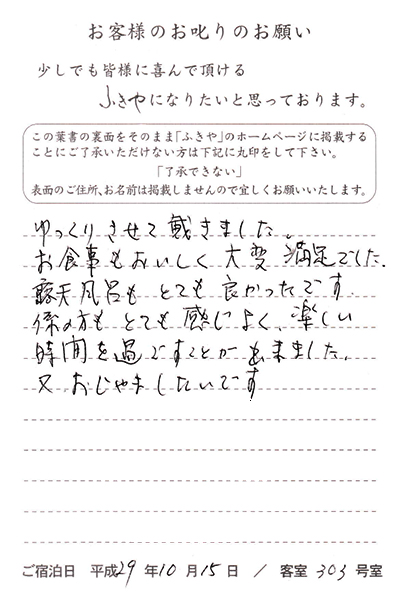 お客様のお叱りのお願い
少しでも皆様に喜んで頂ける
ふきやになりたいと思っております。
この葉書の裏面をそのまま「ふきや」のホームページに掲載する
ことにご了承いただけない方は下記に丸印をして下さい。
「了承できない」
表面のご住所、お名前は掲載しませんので宜しくお願いいたします。
ゆっくりさせて戴きました。
お食事もおいしく大変満足でした。
露天風呂もとても良かったです。
係の方もとても感じよく、楽しい
時間を過ごすことが出来ました。
又おじゃましたいです
ご宿泊日 平成29年10月15日 / 客室 303 号室